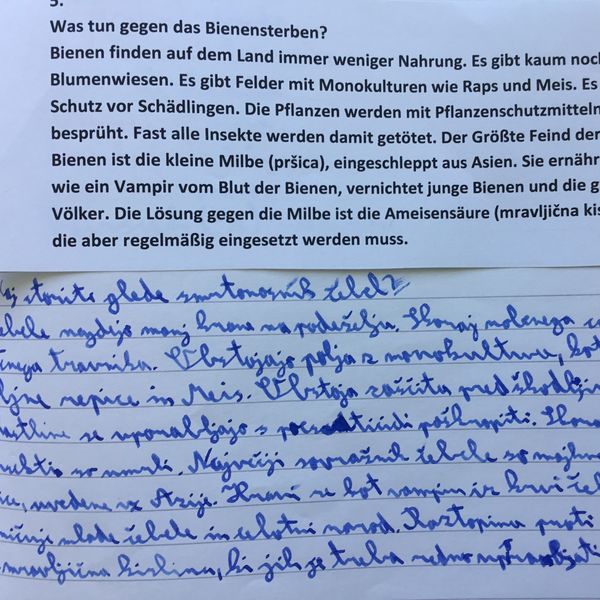 5.
Was tun gegen das Bienensterben?
Bienen finden auf dem Land immer weniger Nahrung. Es gibt kaum noch
Blumenwiesen. Es gibt Felder mit Monokulturen wie Raps und Meis. Es
Schutz vor Schädlingen. Die Pflanzen werden mit Pflanzenschutzmitteln
besprüht. Fast alle Insekte werden damit getötet. Der Größte Feind der
Bienen ist die kleine Milbe (pršica), eingeschleppt aus Asien. Sie ernähr
wie ein Vampir vom Blut der Bienen, vernichtet junge Bienen und die g
Völker. Die Lösung gegen die Milbe ist die Ameisensäure (mravljična kis
die aber regelmäßig eingesetzt werden muss.
storite glede smrtonosnih čebel?
čebele najdejo manj hrane na podeželju. Skoraj nobenega
travnika. Obstajajo polja z monokulturu, kot
repice in Meis. Obstaja zaščita pred škodljiv
rastline se uporabljajo s poškropiti. Skoraj
so umrli. Največji sovražnik čebele so majhne
uvedene iz Azije. Hrani se kot vampir iz krvi čeb
mlade čebele in celotni narod. Raztopina proti
mravljična kislina, ki jih je treba redno uporabljati